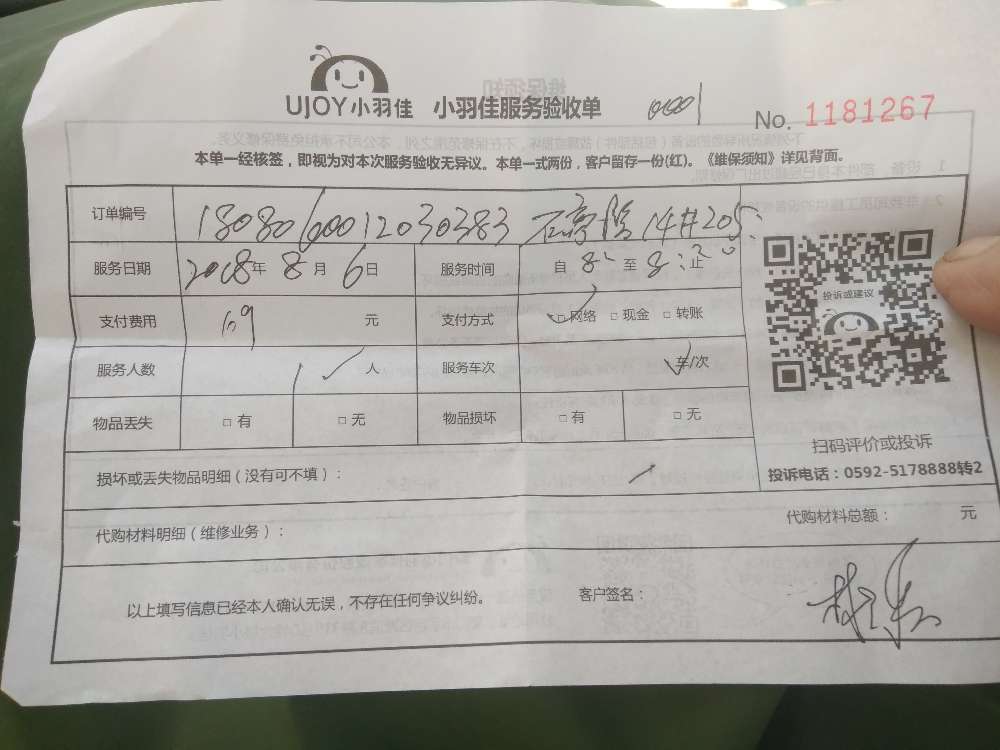 UJOY小羽佳 小羽佳服务验收单 0001 No. 1181267
本单一经核签，即视为对本次服务验收无异议。本单一式两份，客户留存一份(红)。《维保须知》详见背面。
订单编号 1808060012030383 14#205
服务日期 2018年 8月 6日 服务时间 自 8: 至 8: 止
投诉或建议
支付费用 69 元 支付方式 □网络 □现金 □转账
服务人数 1 人 服务车次 车/次
物品丢失 □有 □无 物品损坏 □有 □无
扫码评价或投诉
损坏或丢失物品明细（没有可不填）： 投诉电话：0592-5178888转2
代购材料明细（维修业务）： 代购材料总额： 元
以上填写信息已经本人确认无误，不存在任何争议纠纷。 客户签名：